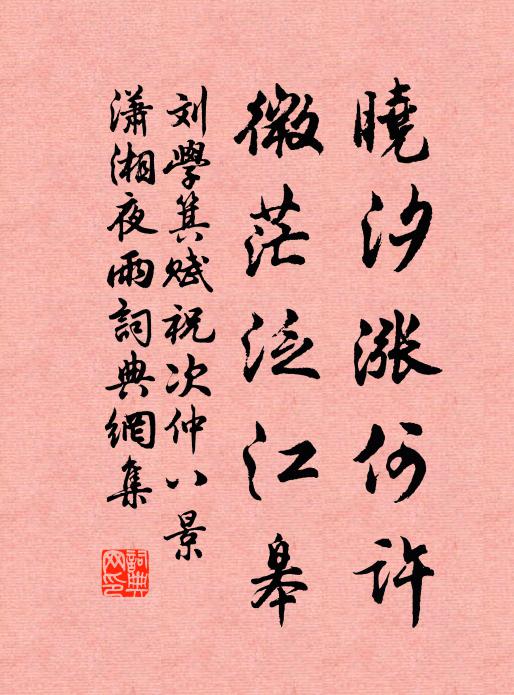 曉汐漲何許
微茫泛江皋
刘學箕赋祝次仲八景
瀟湘夜雨詞典網集
詞典
网印